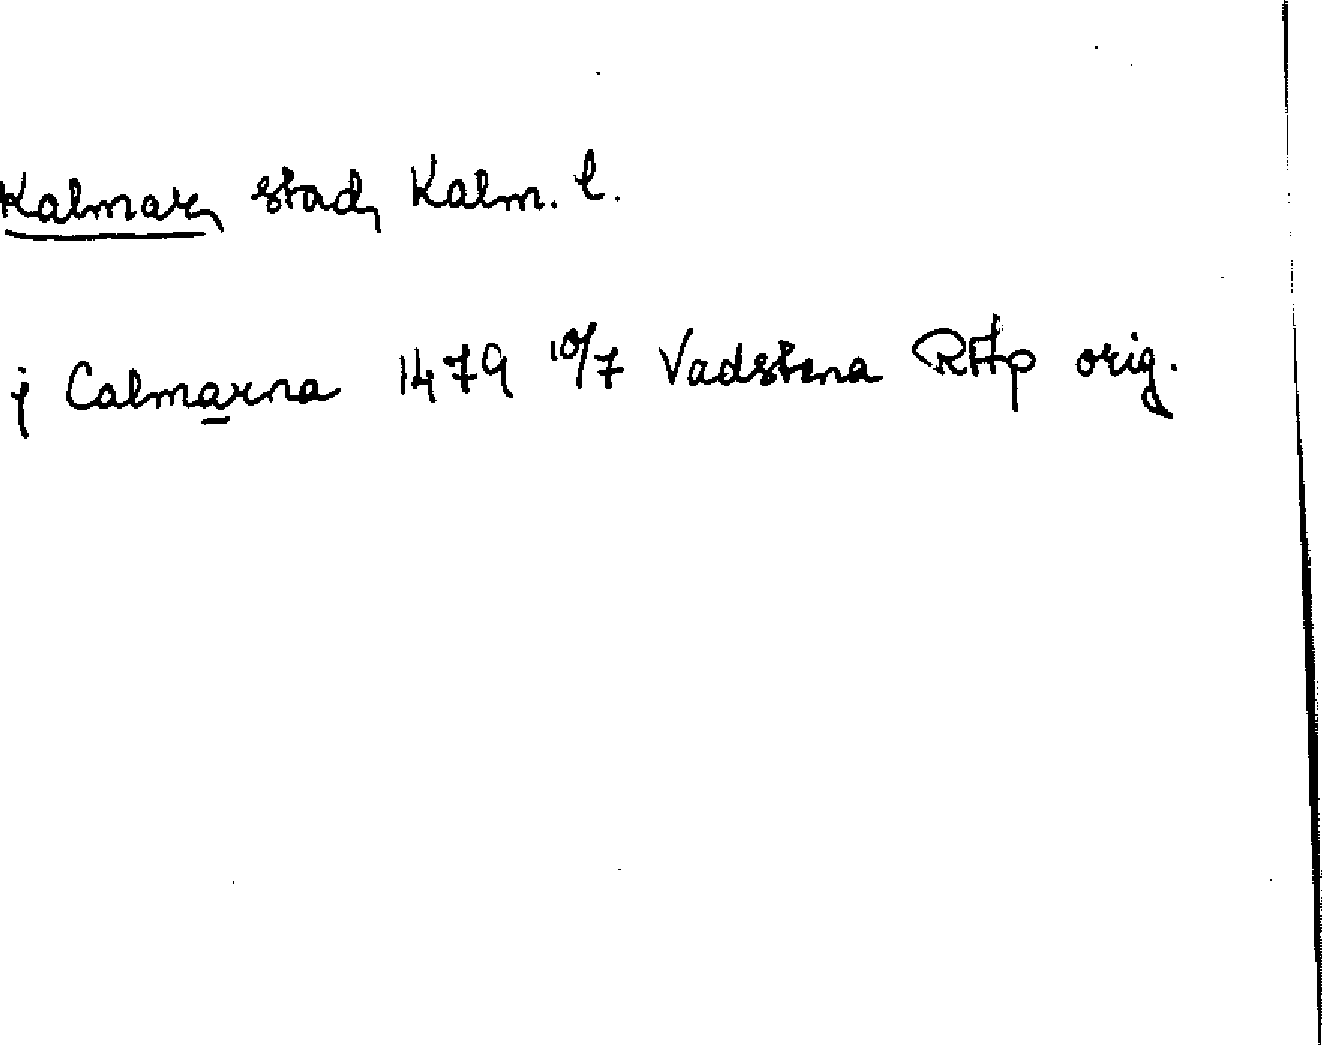 Kalmar, stad, Kalm. l.
j Calmarna 1479 10/7 Vadstena RAp orig.